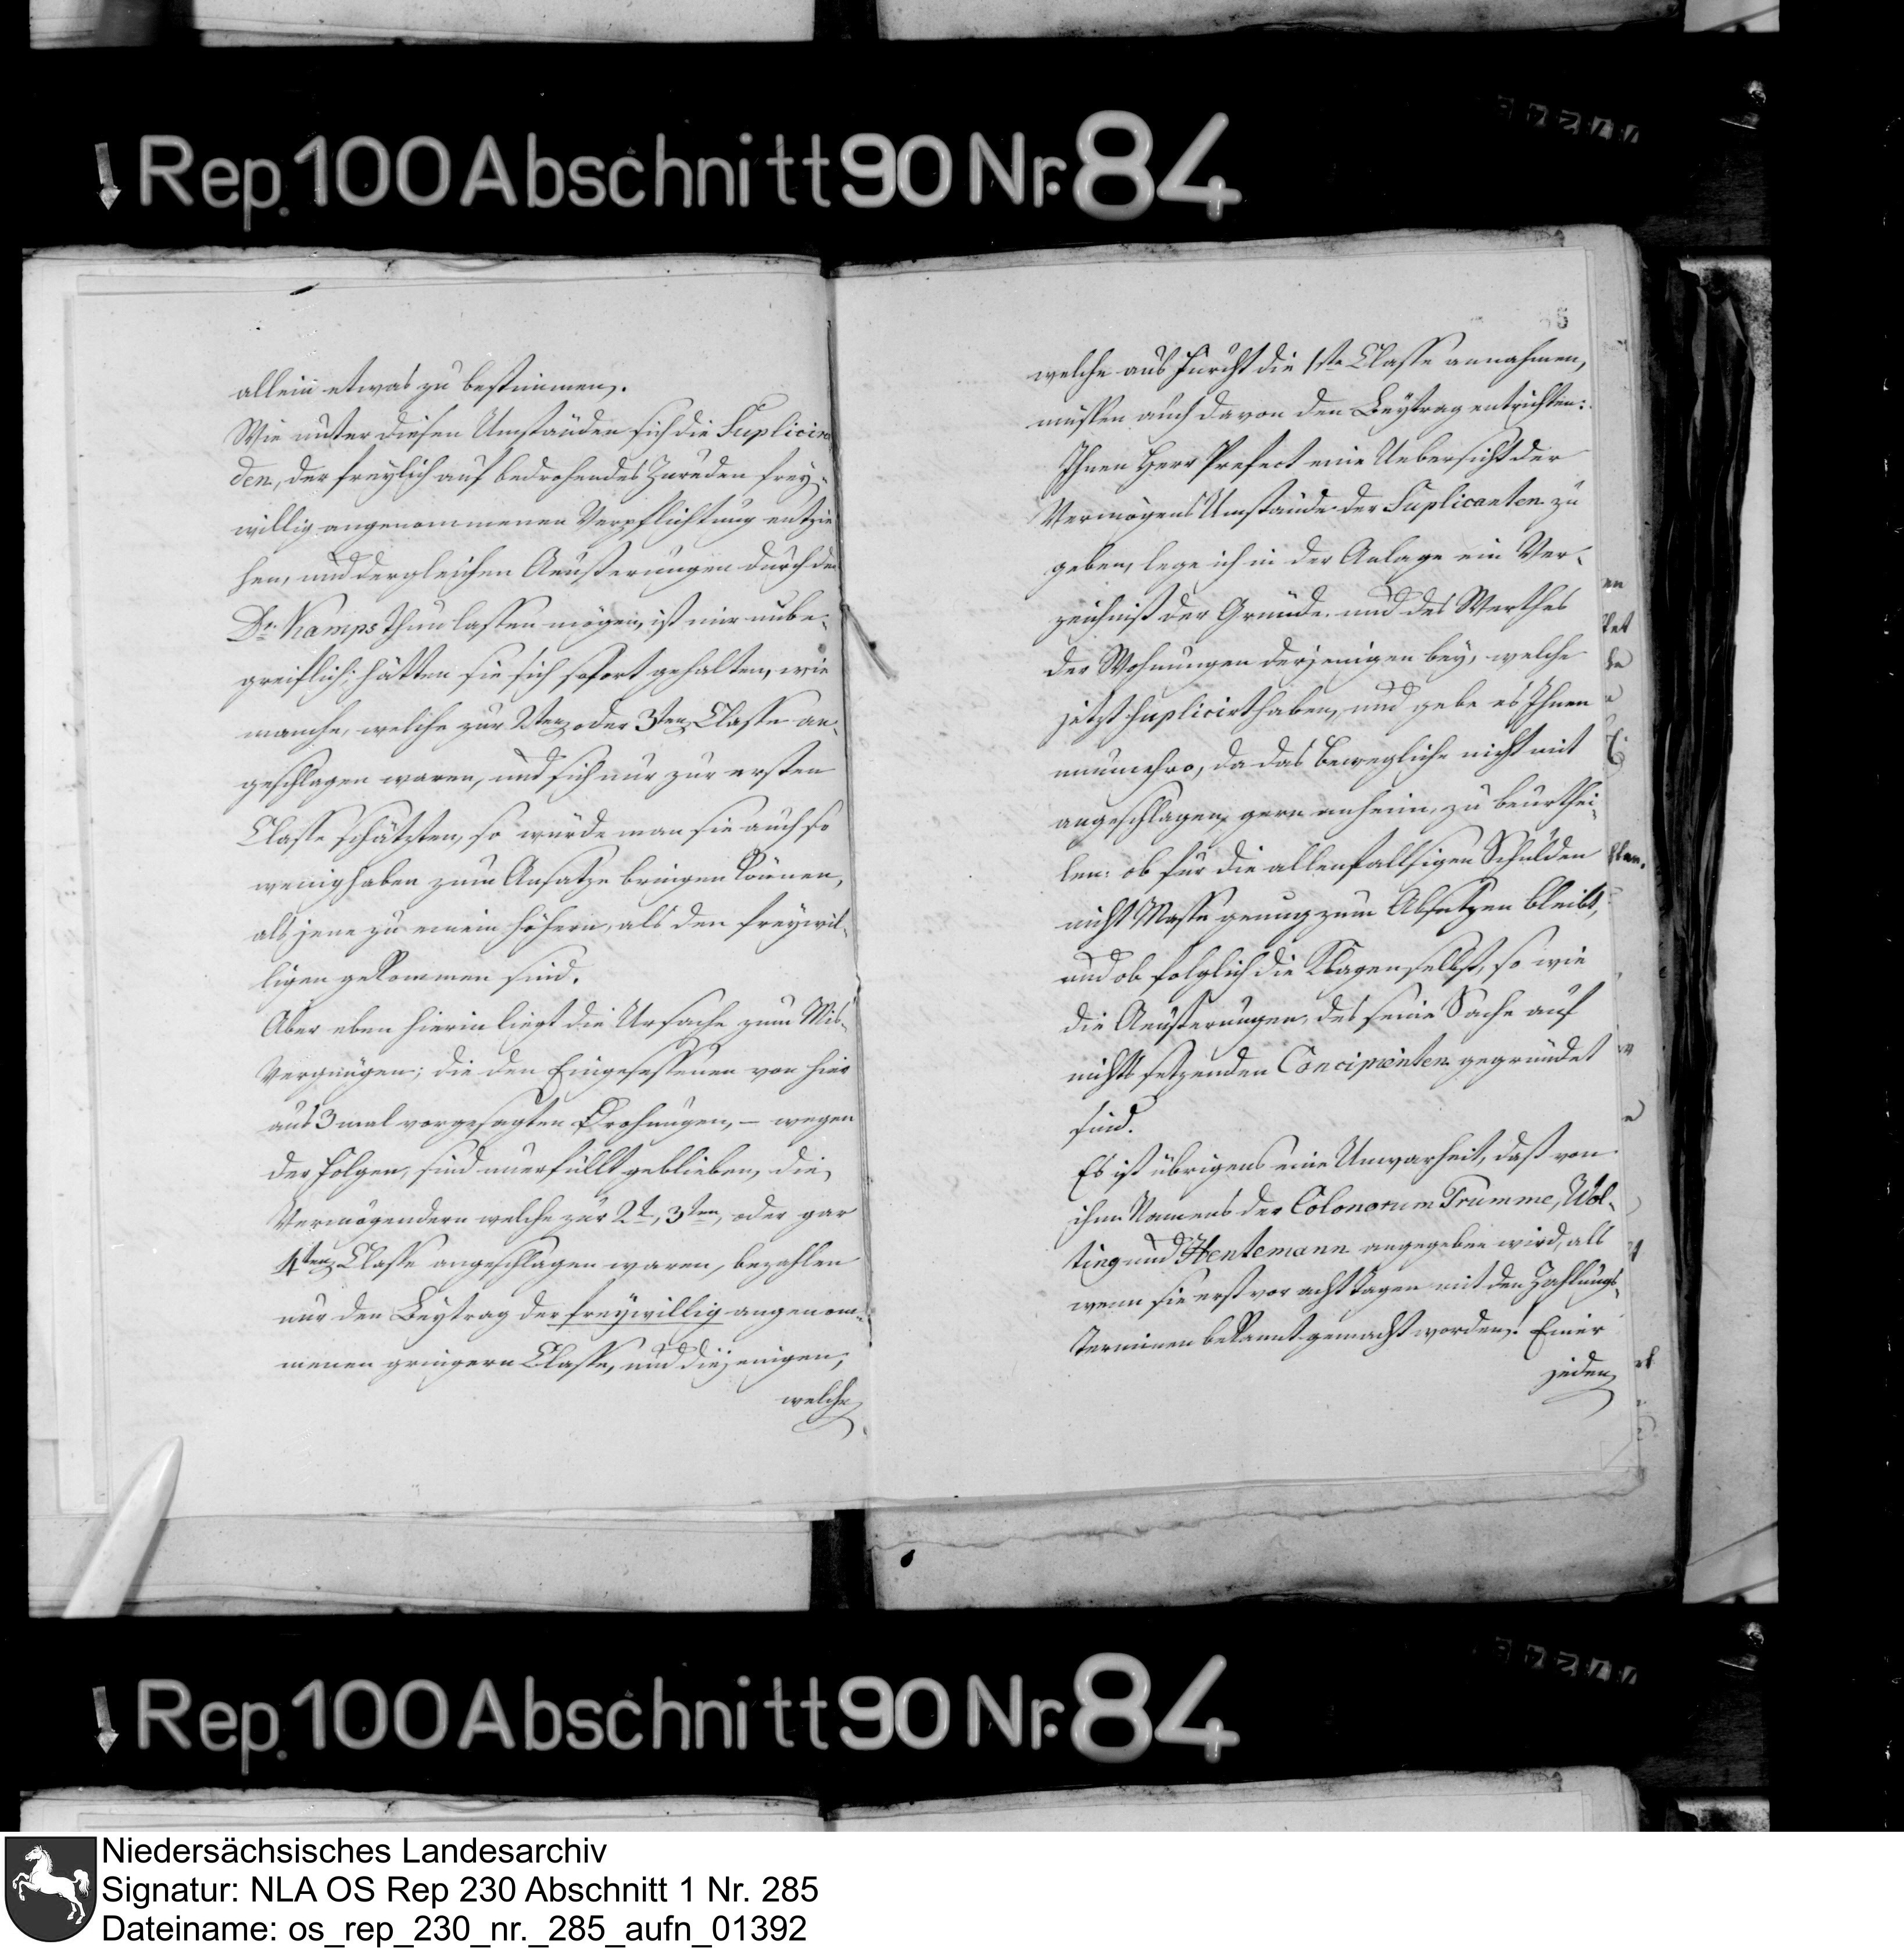 Rep. 100 Abschnitt 90 Nr. 84
allein etwas zu bestimmen.
Wie unter diesen Umständen sich die Suplicin
den, der freylich auf bedrohendes Zureden frey-
willig angenommenen Verpflichtung entzie
hen, und dergleichen Aeusterungen durch den
Dr. Kamps thun lassen mögen, ist mir unbe-
greiflich; hätten sie sich sofort gehalten, wie
manche, welche zur 2ten oder 3ten Classe an-
geschlagen waren, und sich nur zur ersten
Classe schätzten, so würde man sie auch so
wenig haben zum Ansatze bringen können,
als jene zu einem höhern, als den freywil-
ligen gekommen sind.
Aber eben hierin liegt die Ursache zum Mis-
Vergnügen; die den Eingesessenen von hier
aus 3 mal vorgesagten Drohungen, – wegen
der Folgen, sind unerfüllt geblieben, die
Vermögendern welche zur 2t, 3ten, oder gar
4ten Classe angeschlagen waren, bezahlen
nur den Beytrag der freywillig angenom-
menen gringern Classe, und diejenigen,
welche
welche aus Furcht die 1ste Classe annahmen,
müssen auch davon den Beytrag entrichten:
Ihnen Herr Prefect eine Uebersicht der
Vermögens Umstände der Suplicanten zu
geben, lege ich in der Anlage ein Ver-
zeichniß der Gründe und des Werthes
der Wohnungen derjenigen bey, welche
jetzt suplicirt haben, und gebe es Ihnen
nunmehro, da das Bewegliche nicht mit
angeschlagen, gern anheim, zu beurthei-
len: ob für die allenfallsigen Schulden
nicht Masse genug zum Absetzen bleibt,
und ob folglich die Klagen selbst, so wie
die Aeusterungen, des seine Sache auf
nichts setzenden Concipienten gegründet
sind.
Es ist übrigens eine Unwarheit, daß von
ihm Namens der Colonorum Trumme, Wol-
ting und Hentemann angegeben wird, als
wenn sie erst vor acht Tagen mit den Zahlungs-
Terminen bekannt gemacht worden. Einer
jeden
Rep. 100 Abschnitt 90 Nr. 84
Niedersächsisches Landesarchiv
Signatur: NLA OS Rep 230 Abschnitt 1 Nr. 285
Dateiname: os_rep_230_nr._285_aufn_01392